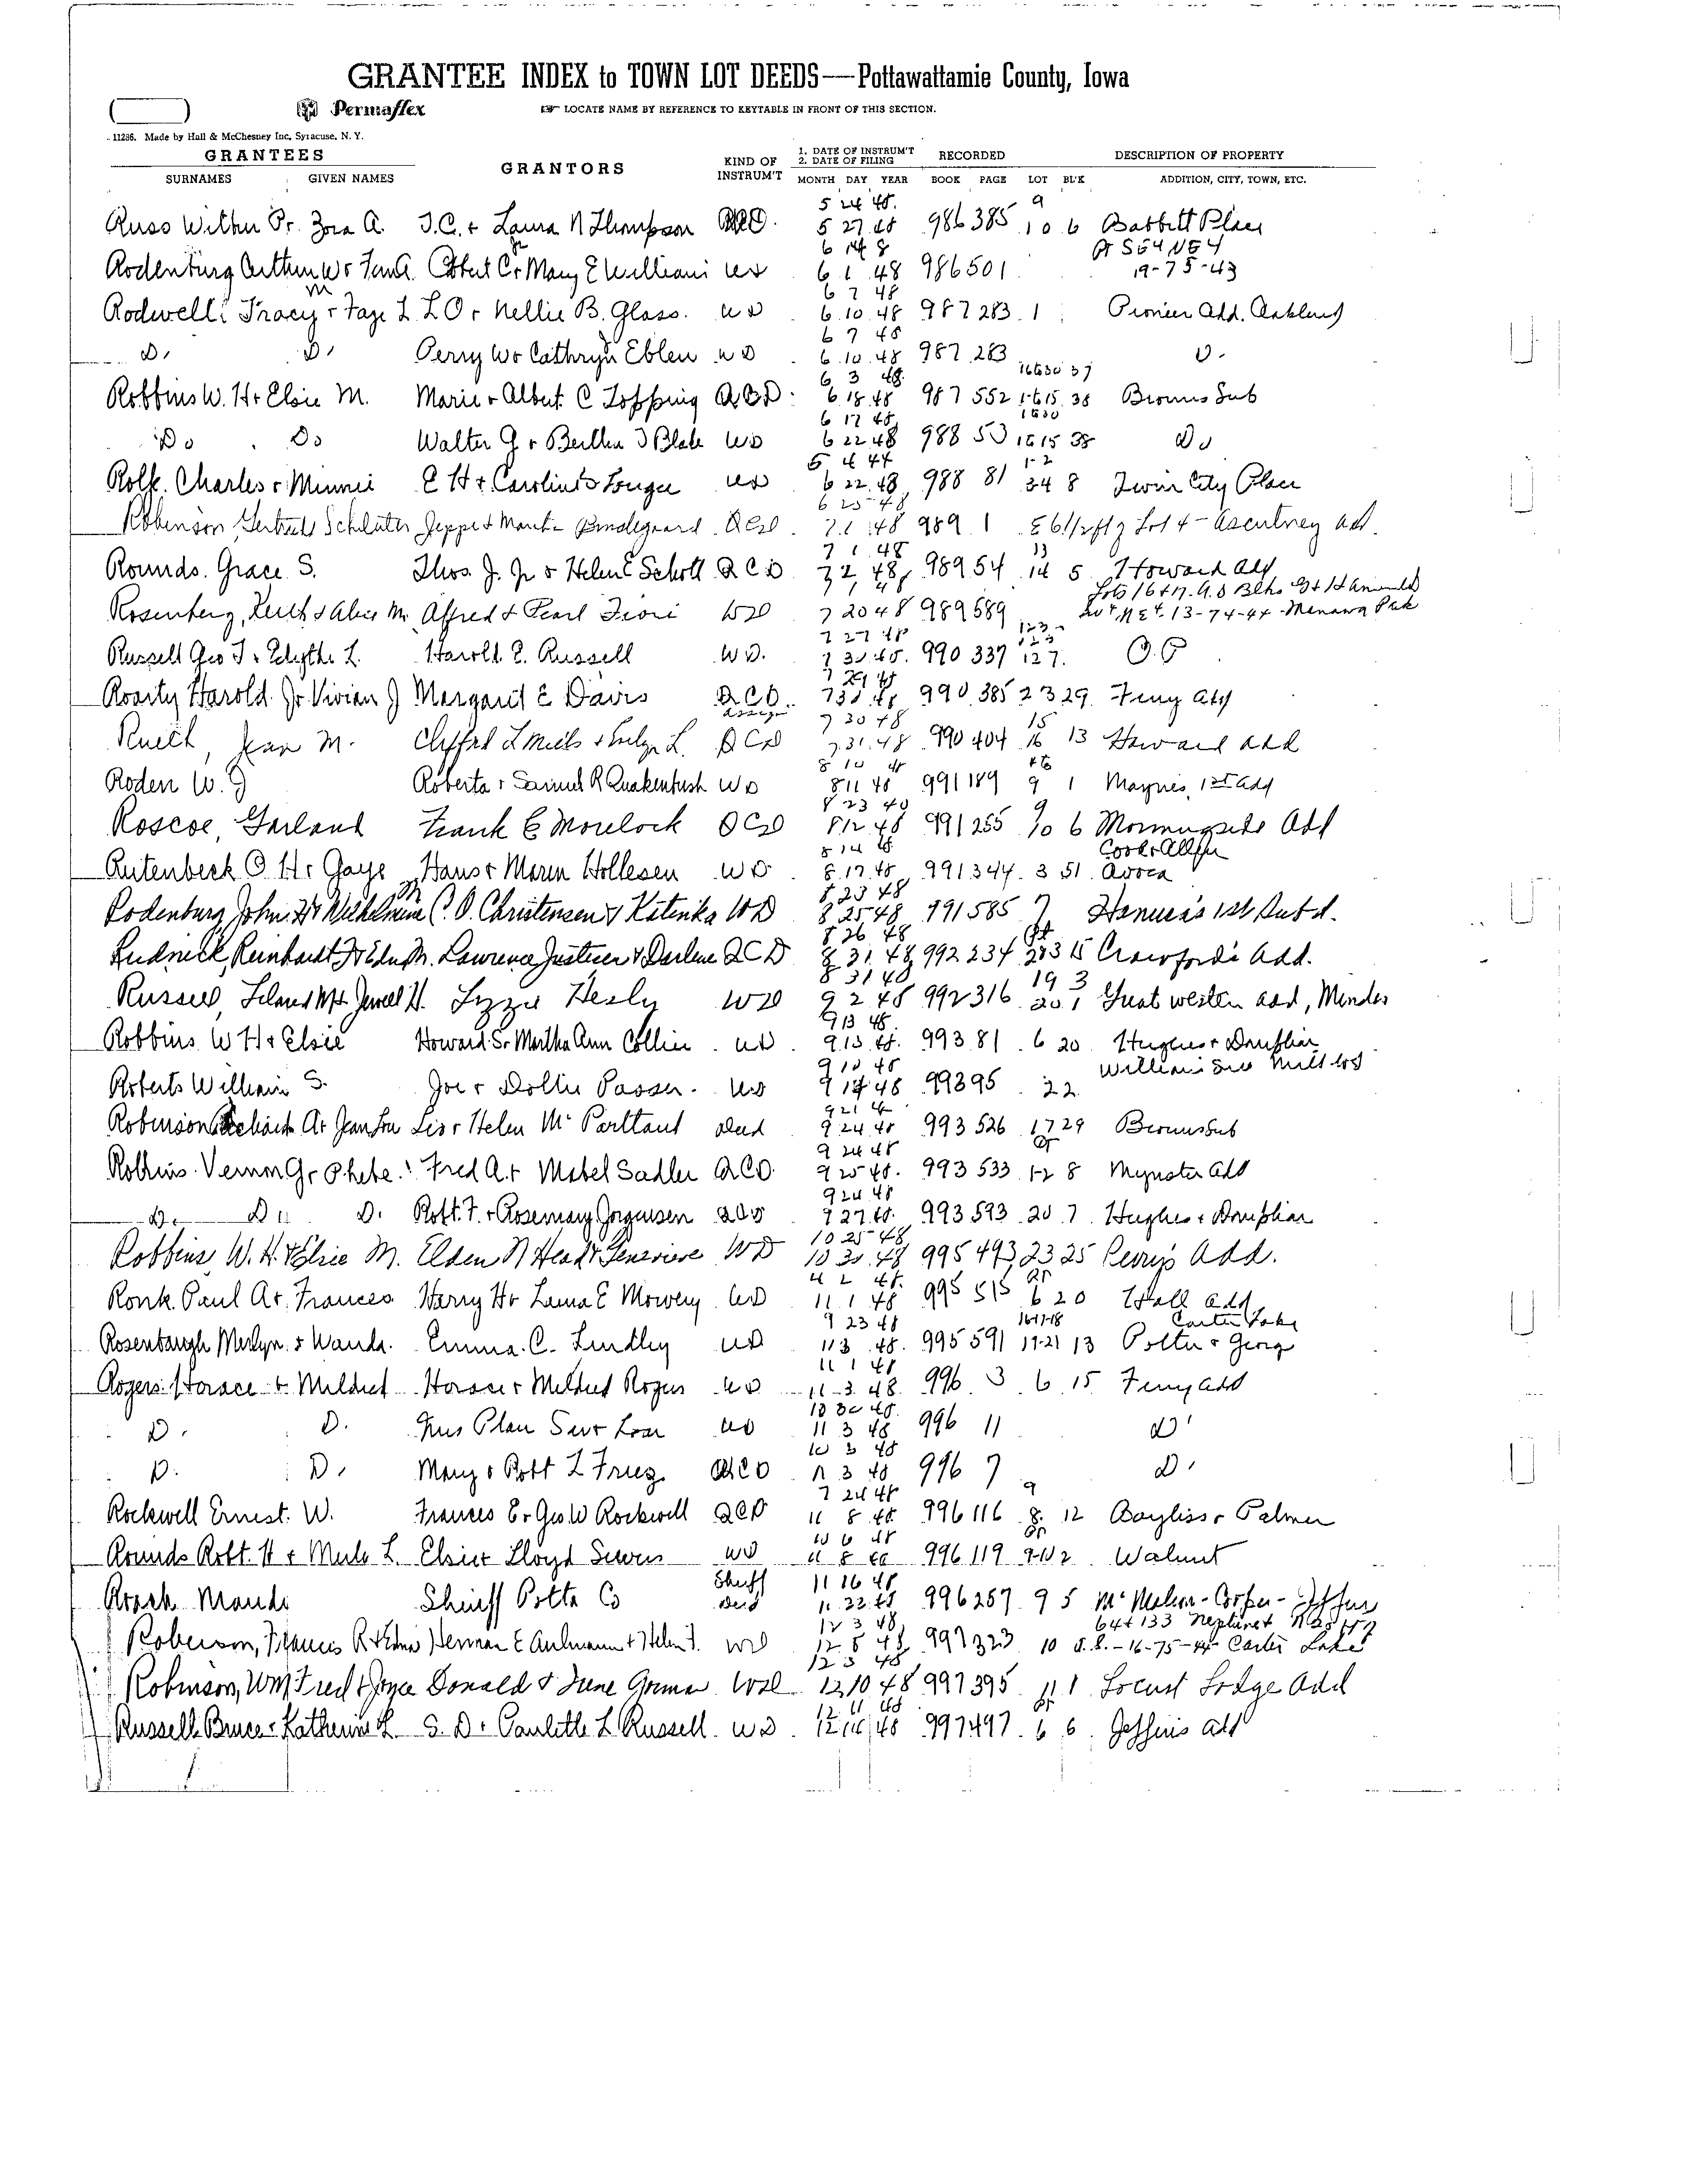 GRANTEE INDEX to TOWN LOT DEEDS—Pottawattamie County, Iowa
Permaflex ☞ LOCATE NAME BY REFERENCE TO KEYTABLE IN FRONT OF THIS SECTION.
11286. Made by Hall & McChesney Inc, Syracuse, N. Y.
GRANTEES GRANTORS KIND OF INSTRUM'T 1. DATE OF INSTRUM'T 2. DATE OF FILING RECORDED DESCRIPTION OF PROPERTY
SURNAMES GIVEN NAMES MONTH DAY YEAR BOOK PAGE LOT BL'K ADDITION, CITY, TOWN, ETC.
5 24 48. 9
Russ Wilbur Pr. Zora A. J.C. + Laura N Thompson QCD. 5 27 48 986 385 10 6 Babbitt Place
Pt SE4 NE4
Rodenburg Arthur W + Mary E William WD 6 1 48 986 501 19-75-43
6 7 48
Rodwell Tracy M + Faye L L O + Nellie B. Glass. WD 6 10 48 987 283 1 Pioneer Add. Oakland
6 7 48
D. D. Perry W + Cathryn Eblen WD 6 10 48 987 283 D.
6 3 48. 16 & 30 37
Robbins W. H + Elsie M. Marie + Albert C Topping QCD. 6 18 48 987 552 1-6-15 38 Browns Sub
6 17 48
Do Do Walter G + Bertha J Blake WD 6 22 48 988 50 16 15 38 Do
5 4 44 1-2
Rolf. Charles + Minnie E H + Caroline Lougee WD 6 22 48 988 81 34 8 Twin City Place
6 25 48
Robinson, Gertrude Schluter Jeppe + QCD 7 1 48 989 1 E 61 1/2 ft of Lot 4 - Ascutney Add.
7 1 48 13
Rounds. Grace S. Thos. J. Jr + Helen E Scholl QCD 7 2 48 989 54 14 5 Howard Add
Lots 16 + 17
Rosenberg, Keith + Alice M. Alfred + Pearl Fiori WD 7 20 48 989 589 13-74-44 - Menawa Park
7 27 48 123
Russell Geo T + Edythe L. Harold E. Russell WD. 7 31 48. 990 337 127. O.P
7 29 48
Rosity Harold Jr Vivian J Margaret E Davis QCD. 7 31 48 990 385 2 3 29 Ferry Add
7 30 48 15
Jean M. Clifford L + Evelyn L. QCD 7 31 48 990 404 16 13 Howard Add
8 10 48
Roden W. J Roberta + Samuel R Quakenbush WD 8 11 48 991 189 9 1 Maynes 1st Add
8 23 40 9
Roscoe, Garland Frank E Morelock QCD 8 12 48 991 255 10 6 Morningside Add
8 14 48 Cook + Allen
Rutenbeck O. H + Gaye Hans + Maren Hollesen WD 8 17 48 991 344 3 51 Avoca
8 23 48
Rodenburg, John H + Wilhelmine C. O. Christensen + Katinka WD 8 25 48 991 585 7 1st Subd.
8 26 48 Pt
Rudnick, Reinhardt F + Edna M. Lawrence Justicer + Darlene QCD 8 31 48 992 234 2&3 15 Crawford's Add.
8 31 48 19 3
Russell, Leland M + Jewell H. Lizzie Hesly WD 9 2 48 992 316 20 1 Great Western Add, Minden
9 13 48.
Robbins W H + Elsie Howard S + Martha Ann Collier WD 9 13 48. 993 81 6 20 Hughes + Doniphan
9 10 48
Roberts William S. Joe + Dollie Passer WD 9 14 48 993 95 22
9 21 48
Robinson Richard A + Jean Lou Leo + Helen McPartland Deed 9 24 48 993 526 17 29 Browns Sub
9 24 48 Pt
Rollins Vernon G + Phebe Fred A. + Mabel Sadler QCD 9 25 48. 993 533 1-2 8 Mynster Add
9 24 48
D. D. D. Robt. F. + Rosemary Jorgensen QCD 9 27 48. 993 593 20 7 Hughes + Doniphan
10 25 48
Robbins, W. H. + Elsie M. Elden N Head + Genevieve WD 10 30 48 995 493 23 25 Perry's Add.
4 2 48. Pt
Ronk Paul A + Frances Harry H + Laura E Mowery WD 11 1 48 995 515 6 20 Hall Add
9 23 48 16-17-18 Carter Lake
Rosenbaugh Merlyn + Wanda. Emma C. Lindley WD 11 3 48. 995 591 19-21 13 Potter + George
11 1 48
Rogers Horace + Mildred Horace + Mildred Rogers WD 11-3 48 996 3 6 15 Ferry Add
10 30 48.
D. D. WD 11 3 48 996 11 D
10 3 48
D. D. Mary + Robt L QCD 11 3 48 996 7 D.
7 24 48 9
Rockwell Ernest. W. Frances E + Geo W Rockwell QCD 11 8 48 996 116 8. 12 Bayliss + Palmer
10 6 48 Pt
Rounds Robt. H + Merle L. Elsie + Lloyd WD 11 8 48 996 119 9-10 2 Walnut
Sheriff 11 16 48
Roark Maude Sheriff Potta Co Deed 11 22 48 996 257 9 5
12 3 48
Roberson, Francis R + Edna Herman E Aulmann + Helen J. WD 12 8 48 997 323 10 16-75-44 Carter Lake
12 3 48
Robinson, Wm Fred + Joyce Donald + June Gorman WD 12 10 48 997 395 11 1 Locust Lodge Add
12 11 48 Pt
Russell Bruce + Katherine L S. D + Paulette L Russell. WD 12 14 48 997 497 6 6 Jeffris Add